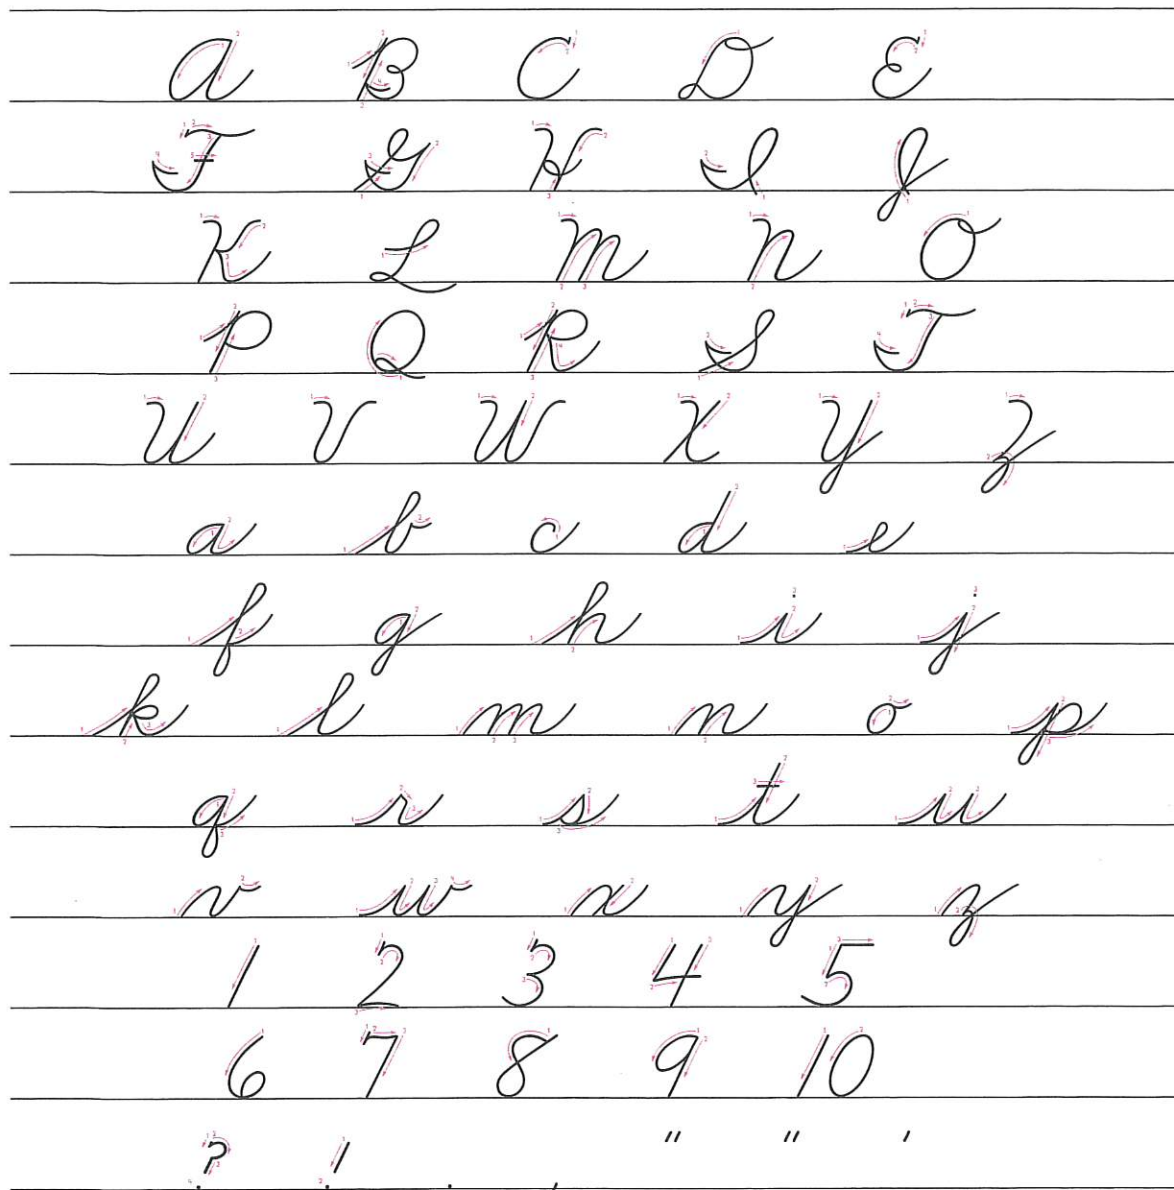 A B C D E
F G H I J
K L M N O
P Q R S T
U V W X Y Z
a b c d e
f g h i j
k l m n o p
q r s t u
v w x y z
1 2 3 4 5
6 7 8 9 10
? ! . , " " '